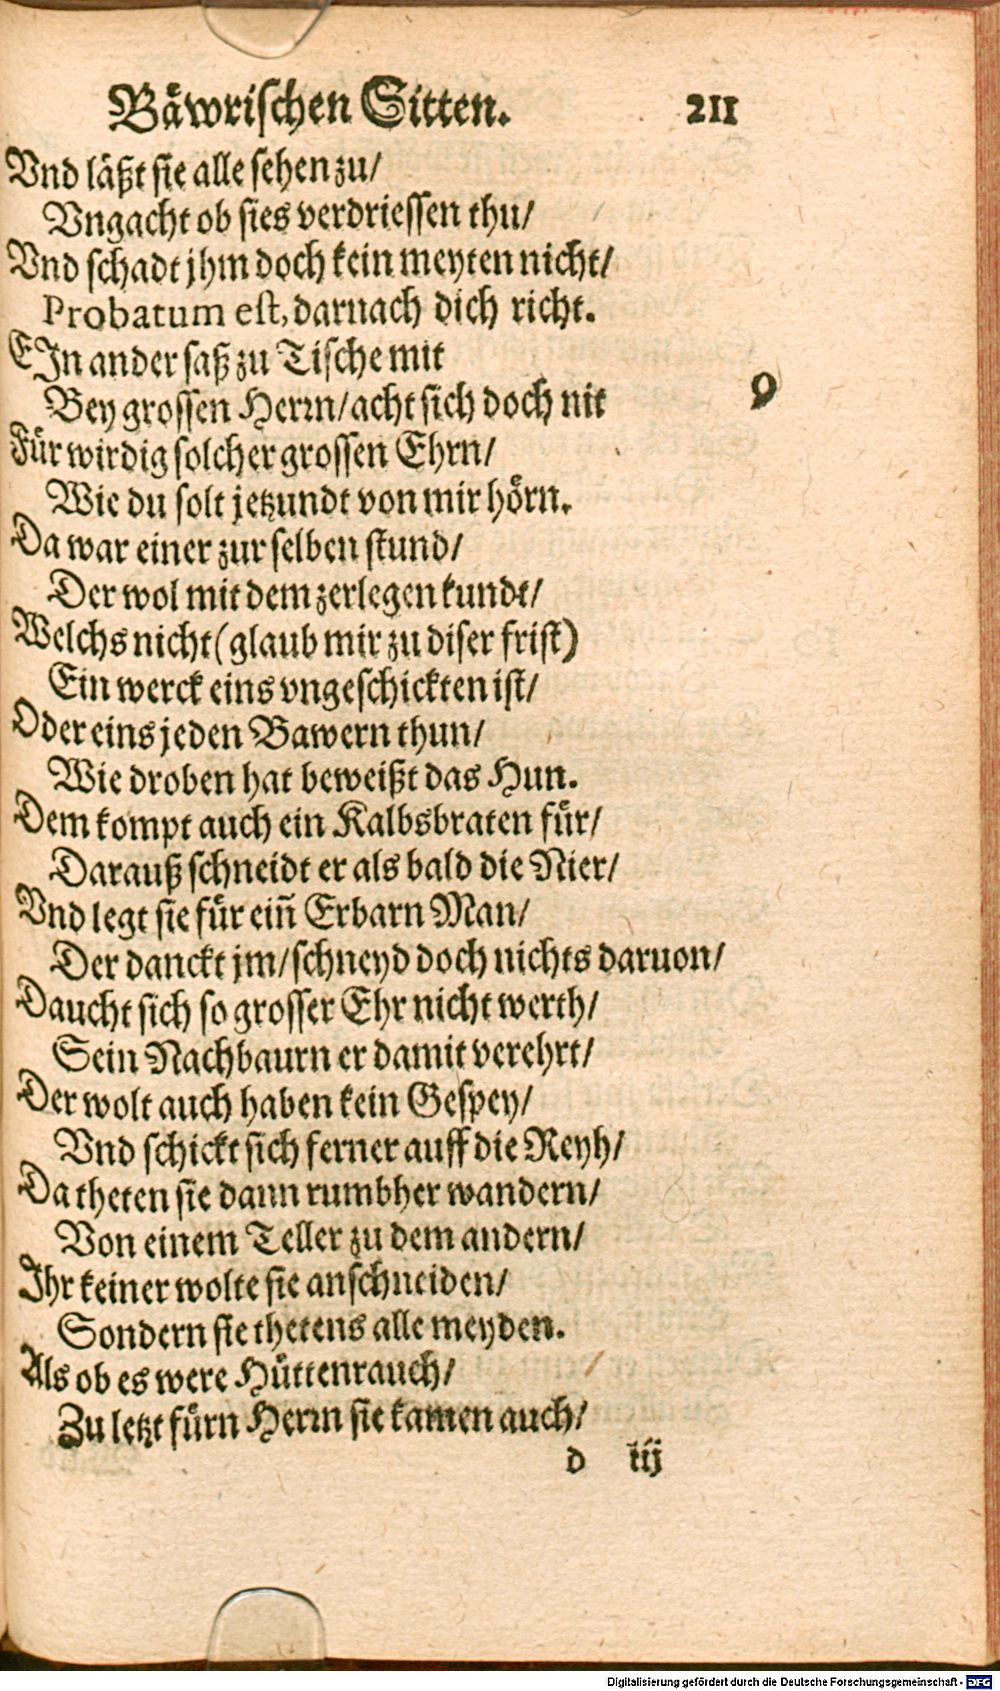 Bäwrischen Sitten. 211
Vnd läßt sie alle sehen zu/
Vngacht ob sies verdriessen thu/
Vnd schadt jhm doch kein meyten nicht/
Probatum est, darnach dich richt.
EIn ander saß zu Tische mit
Bey grossen Herrn/acht sich doch nit 9
Für wirdig solcher grossen Ehrn/
Wie du solt jetzundt von mir hörn.
Da war einer zur selben stund/
Der wol mit dem zerlegen kundt/
Welchs nicht (glaub mir zu diser frist)
Ein werck eins vngeschickten ist/
Oder eins jeden Bawern thun/
Wie droben hat beweißt das Hun.
Dem kompt auch ein Kalbsbraten für/
Darauß schneidt er als bald die Nier/
Vnd legt sie für ein̄ Erbarn Man/
Der danckt jm/schneyd doch nichts daruon/
Daucht sich so grosser Ehr nicht werth/
Sein Nachbaurn er damit verehrt/
Der wolt auch haben kein Gespey/
Vnd schickt sich ferner auff die Reyh/
Da theten sie dann rumbher wandern/
Von einem Teller zu dem andern/
Ihr keiner wolte sie anschneiden/
Sondern sie thetens alle meyden.
Als ob es were Hüttenrauch/
Zu letzt fürn Herrn sie kamen auch/
d iij
Digitalisierung gefördert durch die Deutsche Forschungsgemeinschaft - DFG